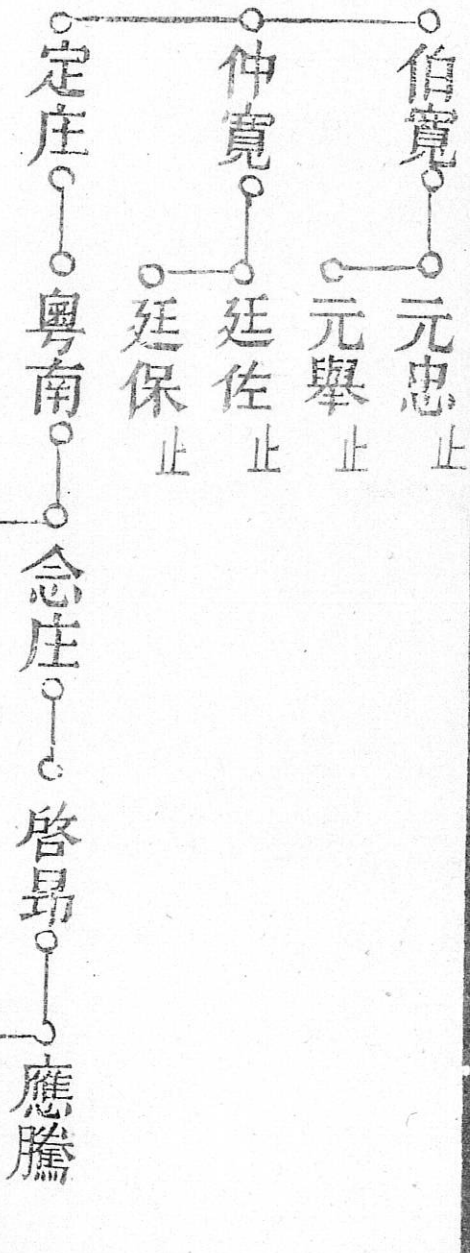 伯寬
元忠止
元舉止
仲寬
廷佐止
廷保止
定庄
粵南
念庄
啓昂
應騰